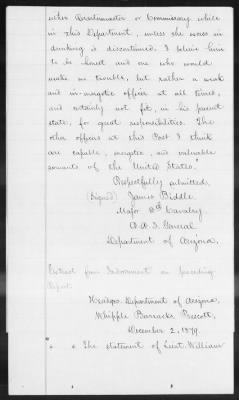 either Quartermaster or Commissary while
in this Department, unless the excess in
drinking is discontinued. I believe him
to be honest and one who would
make no trouble, but rather a weak
and in-energetic officer at all times,
and certainly not fit, in his present
state, for great responsibilities. The
other officers at this Post I think
are capable, energetic, and valuable
servants of the United States."
Respectfully submitted,
(Signed) James Biddle
Major 6th Cavalry
A.A.I. General
Department of Arizona.
Extract from Indorsement on preceding
Report.
Hdqrs. Department of Arizona,
Whipple Barracks Prescott,
December 2, 1879.
* * The statement of Lieut. William